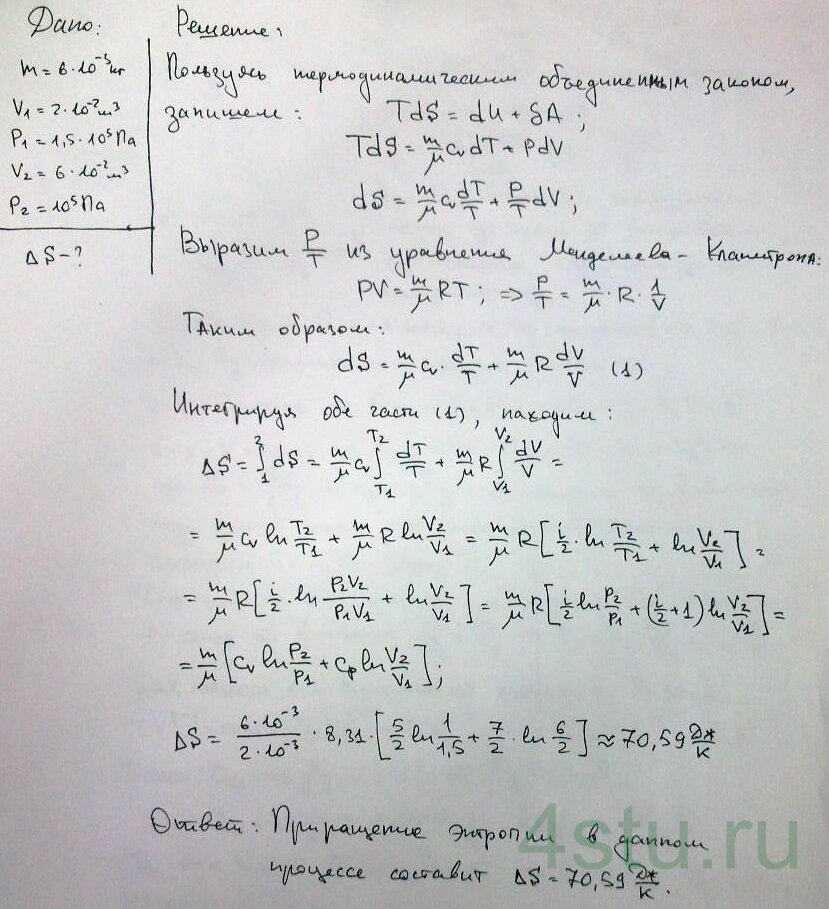 Дано:
m = 6·10⁻³ кг
V₁ = 2·10⁻² м³
P₁ = 1,5·10⁵ Па
V₂ = 6·10⁻² м³
P₂ = 10⁵ Па
ΔS - ?
Решение:
Пользуясь термодинамическим объединенным законом,
запишем: TdS = dU + δA ;
TdS = m/μ cᵥ dT + PdV
dS = m/μ cᵥ dT/T + P/T dV ;
Выразим P/T из уравнения Менделеева - Клапейрона:
PV = m/μ RT ; => P/T = m/μ · R · 1/V
Таким образом:
dS = m/μ cᵥ · dT/T + m/μ R dV/V (1)
Интегрируя обе части (1), находим:
ΔS = ∫₁² dS = m/μ cᵥ ∫_{T₁}^{T₂} dT/T + m/μ R ∫_{V₁}^{V₂} dV/V =
= m/μ cᵥ ln T₂/T₁ + m/μ R ln V₂/V₁ = m/μ R [ i/2 · ln T₂/T₁ + ln V₂/V₁ ] =
= m/μ R [ i/2 · ln P₂V₂/P₁V₁ + ln V₂/V₁ ] = m/μ R [ i/2 ln P₂/P₁ + (i/2 + 1) ln V₂/V₁ ] =
= m/μ [ cᵥ ln P₂/P₁ + cₚ ln V₂/V₁ ] ;
ΔS = 6·10⁻³/2·10⁻³ · 8,31 · [ 5/2 ln 1/1,5 + 7/2 · ln 6/2 ] ≈ 70,59 Дж/К
Ответ: Приращение энтропии в данном
процессе составит ΔS = 70,59 Дж/К.
4stu.ru